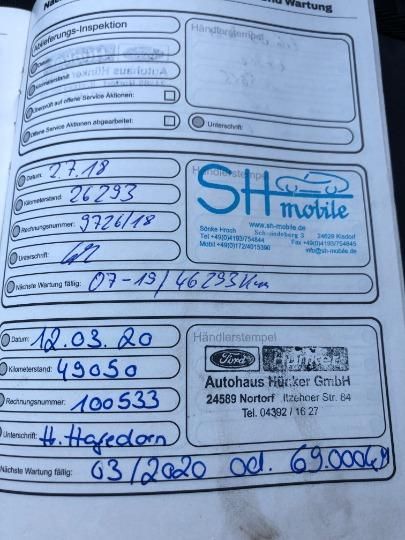 und Wartung
Ablieferungs-Inspektion
Händlerstempel
Datum:
Kilometerstand:
Überprüft auf offene Service Aktionen:
Offene Service Aktionen abgearbeitet:
Unterschrift:
Datum: 2.7.18
Kilometerstand: 26293
Rechnungsnummer: 9726/18
Unterschrift:
Nächste Wartung fällig: 07-19/46293Km
Händlerstempel
SH mobile
www.sh-mobile.de
Sönke Hroch
24629 Kisdorf
Tel +49(0)4193/754844
Fax +49(0)4193/754845
Mobil +49(0)172/4015390
info@sh-mobile.de
Datum: 12.03.20
Kilometerstand: 49050
Rechnungsnummer: 100533
Unterschrift: H. Hagedorn
Nächste Wartung fällig: 03/2020 od. 69.000
Händlerstempel
Ford Hünker
Autohaus Hünker GmbH
24589 Nortorf Itzehoer Str. 84
Tel. 04392 / 16 27